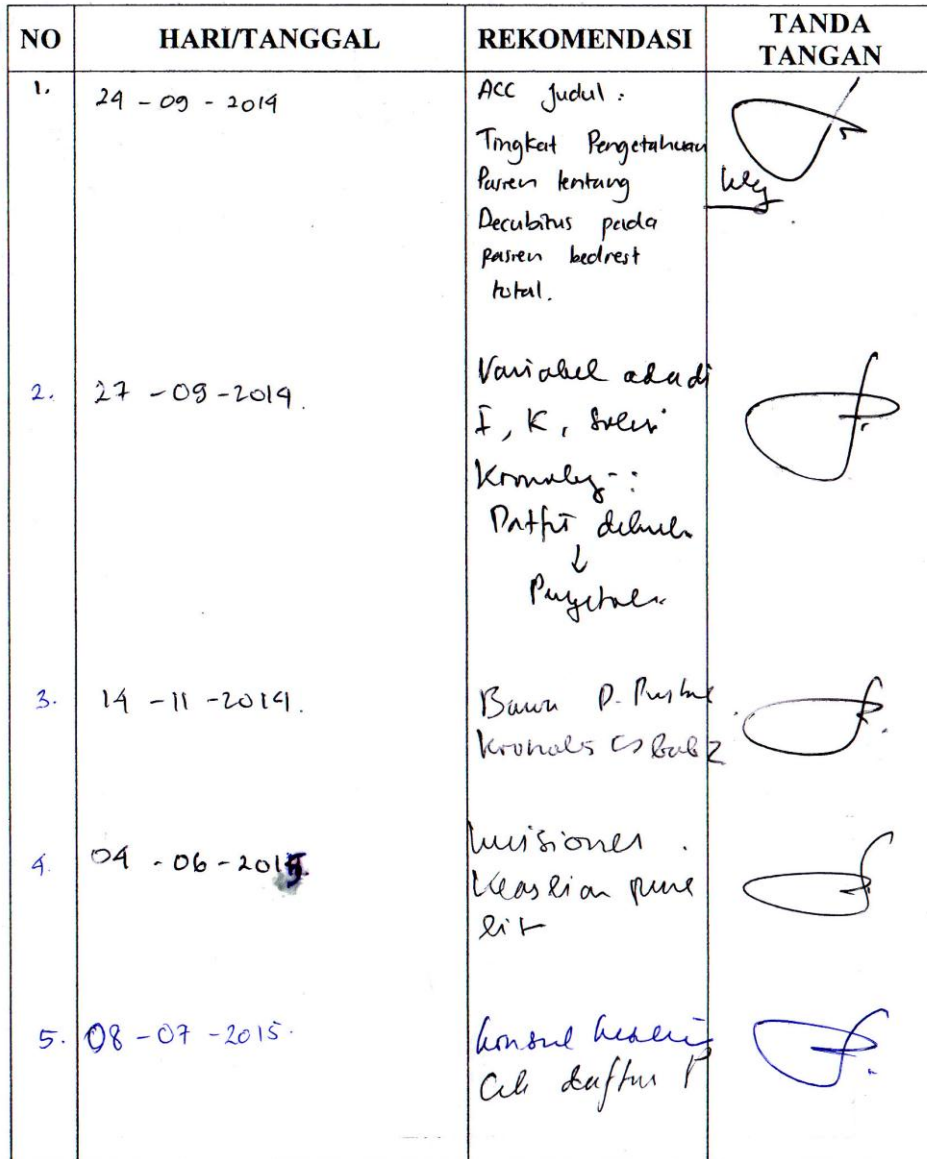 NO HARI/TANGGAL REKOMENDASI TANDA TANGAN
1. 24 - 09 - 2014 ACC Judul :
Tingkat Pengetahuan
Pasien tentang
Decubitus pada
pasien bedrest
total.
2. 27 - 09 - 2014. Variabel ada di
I, K, Solusi
Kronologi :
↓
3. 14 - 11 - 2014. Bawa
Kronologis bab 2
4. 04 - 06 - 2015. kuisioner .
Keaslian pene
lit
5. 08 - 07 - 2015. konsul
Cek daftar P